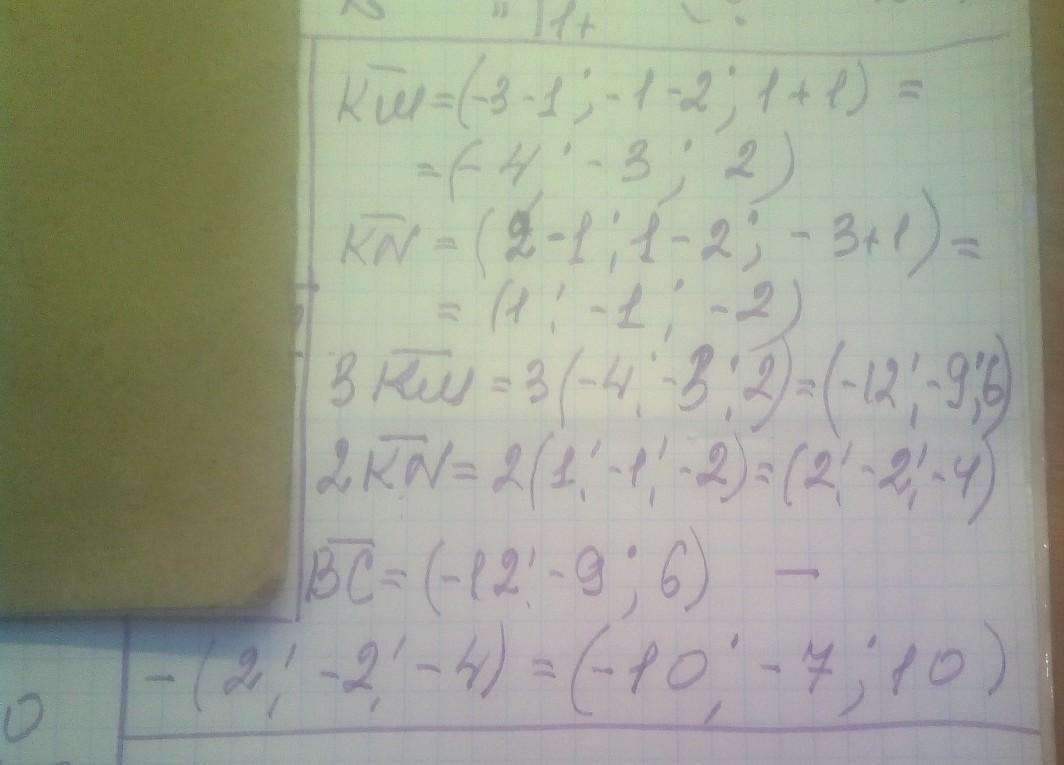 KM=(-3-1; -1-2; 1+1) =
=(-4; -3; 2)
KN = (2-1; 1-2; -3+1) =
= (1; -1; -2)
3 KM = 3(-4; -3; 2)=(-12; -9; 6)
2 KN= 2(1; -1; -2)=(2; -2; -4)
BC= (-12; -9; 6) —
-(2; -2; -4) = (-10; -7; 10)